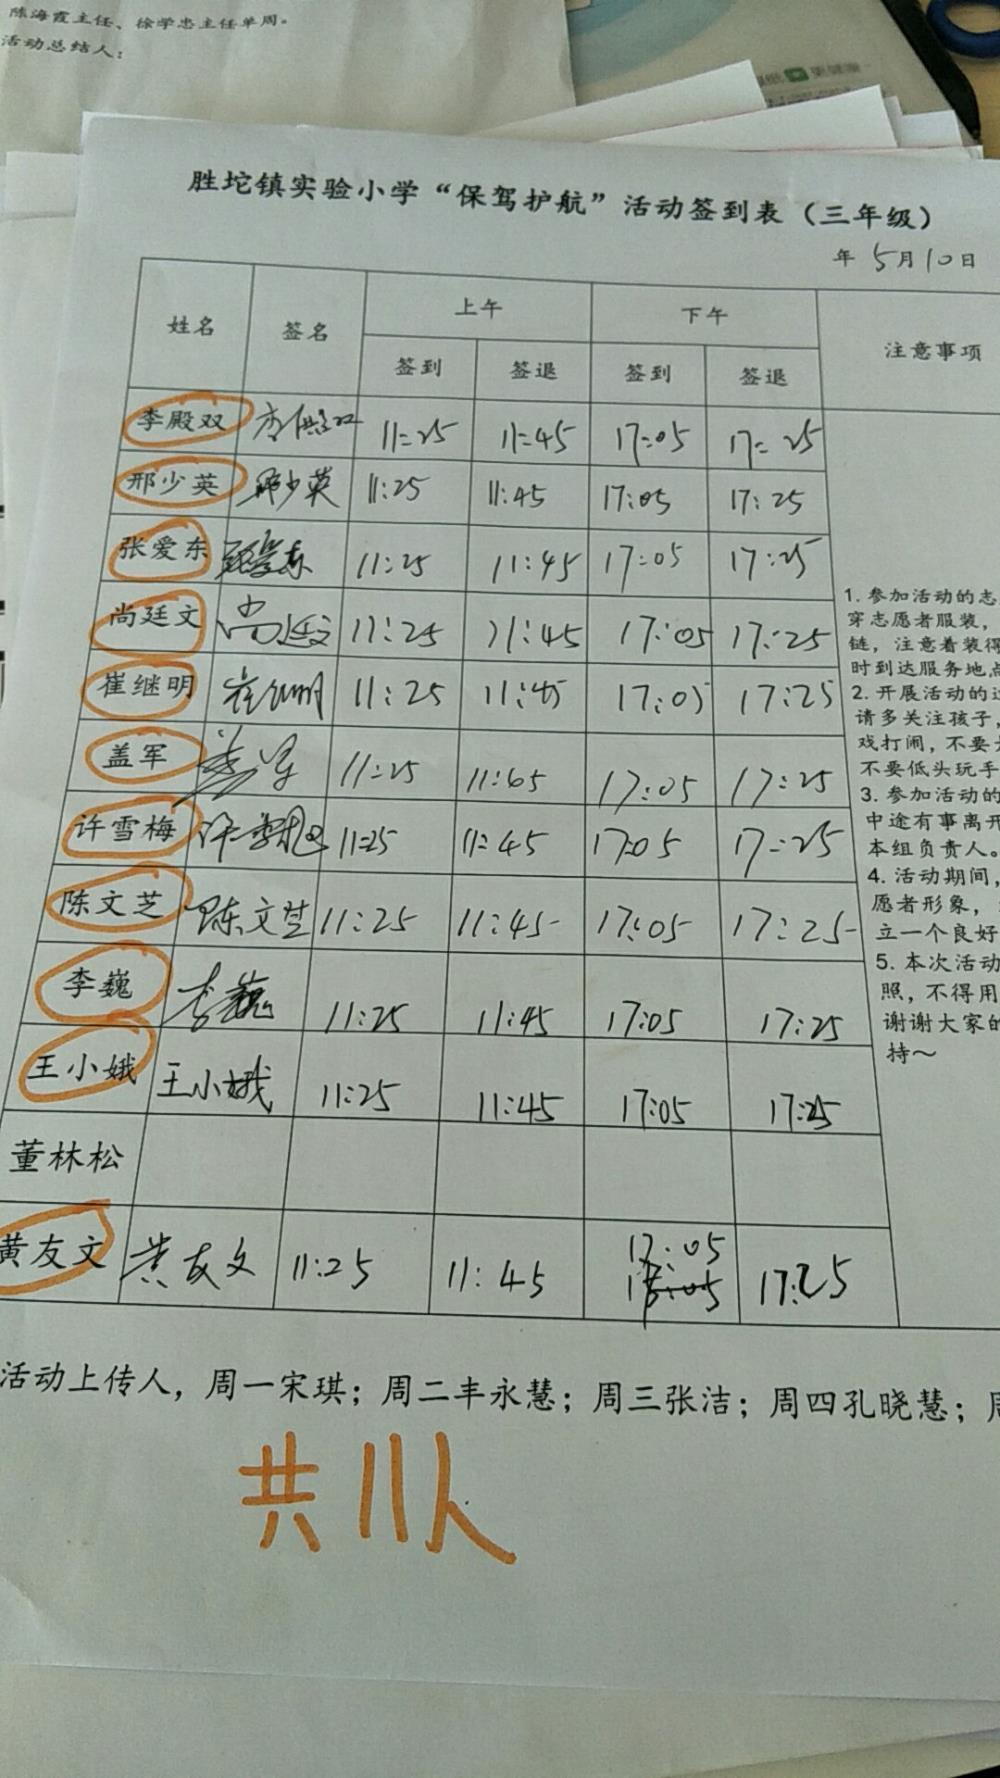 陈海霞主任、徐学忠主任单周。
活动总结人：
胜坨镇实验小学“保驾护航”活动签到表（三年级）
年 5月10日
姓名 签名 上午 下午 注意事项
签到 签退 签到 签退
李殿双 李殿双 11:25 11:45 17:05 17:25
邢少英 邢少英 11:25 11:45 17:05 17:25
张爱东 张爱东 11:25 11:45 17:05 17:25
尚廷文 尚廷文 11:25 11:45 17:05 17:25
崔继明 崔继明 11:25 11:45 17:05 17:25
盖军 盖军 11:25 11:65 17:05 17:25
许雪梅 许雪梅 11:25 11:45 17:05 17:25
陈文芝 陈文芝 11:25 11:45 17:05 17:25
李巍 李巍 11:25 11:45 17:05 17:25
王小娥 王小娥 11:25 11:45 17:05 17:25
董林松
黄友文 黄友文 11:25 11:45 17:05 17:25
1. 参加活动的志
穿志愿者服装，
链，注意着装得
时到达服务地点
2. 开展活动的过
请多关注孩子，
戏打闹，不要
不要低头玩手
3. 参加活动的
中途有事离开
本组负责人。
4. 活动期间，
愿者形象，
立一个良好
5. 本次活动
照，不得用
谢谢大家的
持～
活动上传人，周一宋琪；周二丰永慧；周三张洁；周四孔晓慧；周
共11人